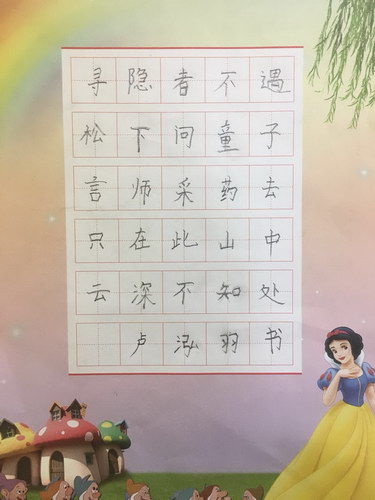 寻隐者不遇
松下问童子
言师采药去
只在此山中
云深不知处
卢泓羽书